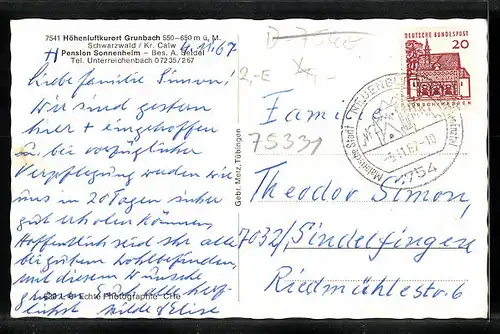 7541 Höhenluftkurort Grunbach 550-650 m ü. M.
Schwarzwald / Kr. Calw
Pension Sonnenheim – Bes. A. Seidel
Tel. Unterreichenbach 07235/267
4.11.67
Liebe Familie Simon!
Wir sind gestern
hier + eingetroffen
u. bei vorzüglicher
Verpflegung werden wir
uns in 20 Tagen sicher
gut erholen können,
Hoffentlich seid ihr alle
bei gutem Wohlbefinden,
mit diesem Wunsche
Euch alle herz-
lichst Hilde + Elise
Echte Photographie
Gebr. Metz, Tübingen
2,-E
75331
DEUTSCHE BUNDESPOST
20
LORSCH/HESSEN
NEUENBÜRG
Malerische Stadt
-5.11.67-10
754
Familie
Theodor Simon,
7032/Sindelfingen
Riedmühlestr. 6